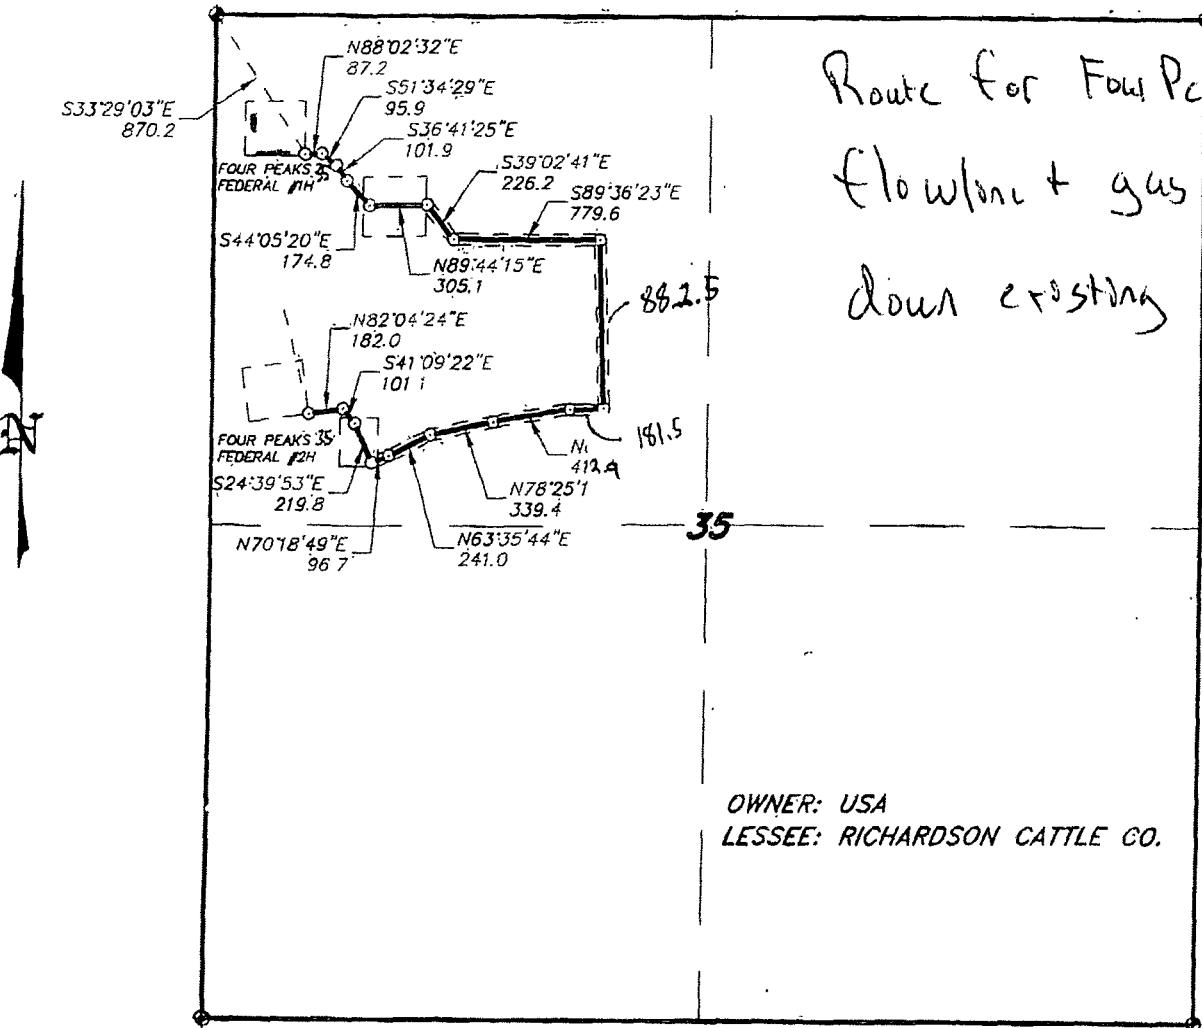 N88°02'32"E
87.2
S51°34'29"E
95.9
S36°41'25"E
101.9
S33°29'03"E
870.2
FOUR PEAKS
FEDERAL #1H
S39°02'41"E
226.2
S89°36'23"E
779.6
S44°05'20"E
174.8
N89°44'15"E
305.1
882.5
N82°04'24"E
182.0
S41°09'22"E
101.1
FOUR PEAKS 35
FEDERAL #2H
S24°39'53"E
219.8
N70°18'49"E
96.7
N63°35'44"E
241.0
N78°25'1
339.4
N
412.9
181.5
35
Route for Four Pe
flowline + gas
down existing
OWNER: USA
LESSEE: RICHARDSON CATTLE CO.
N